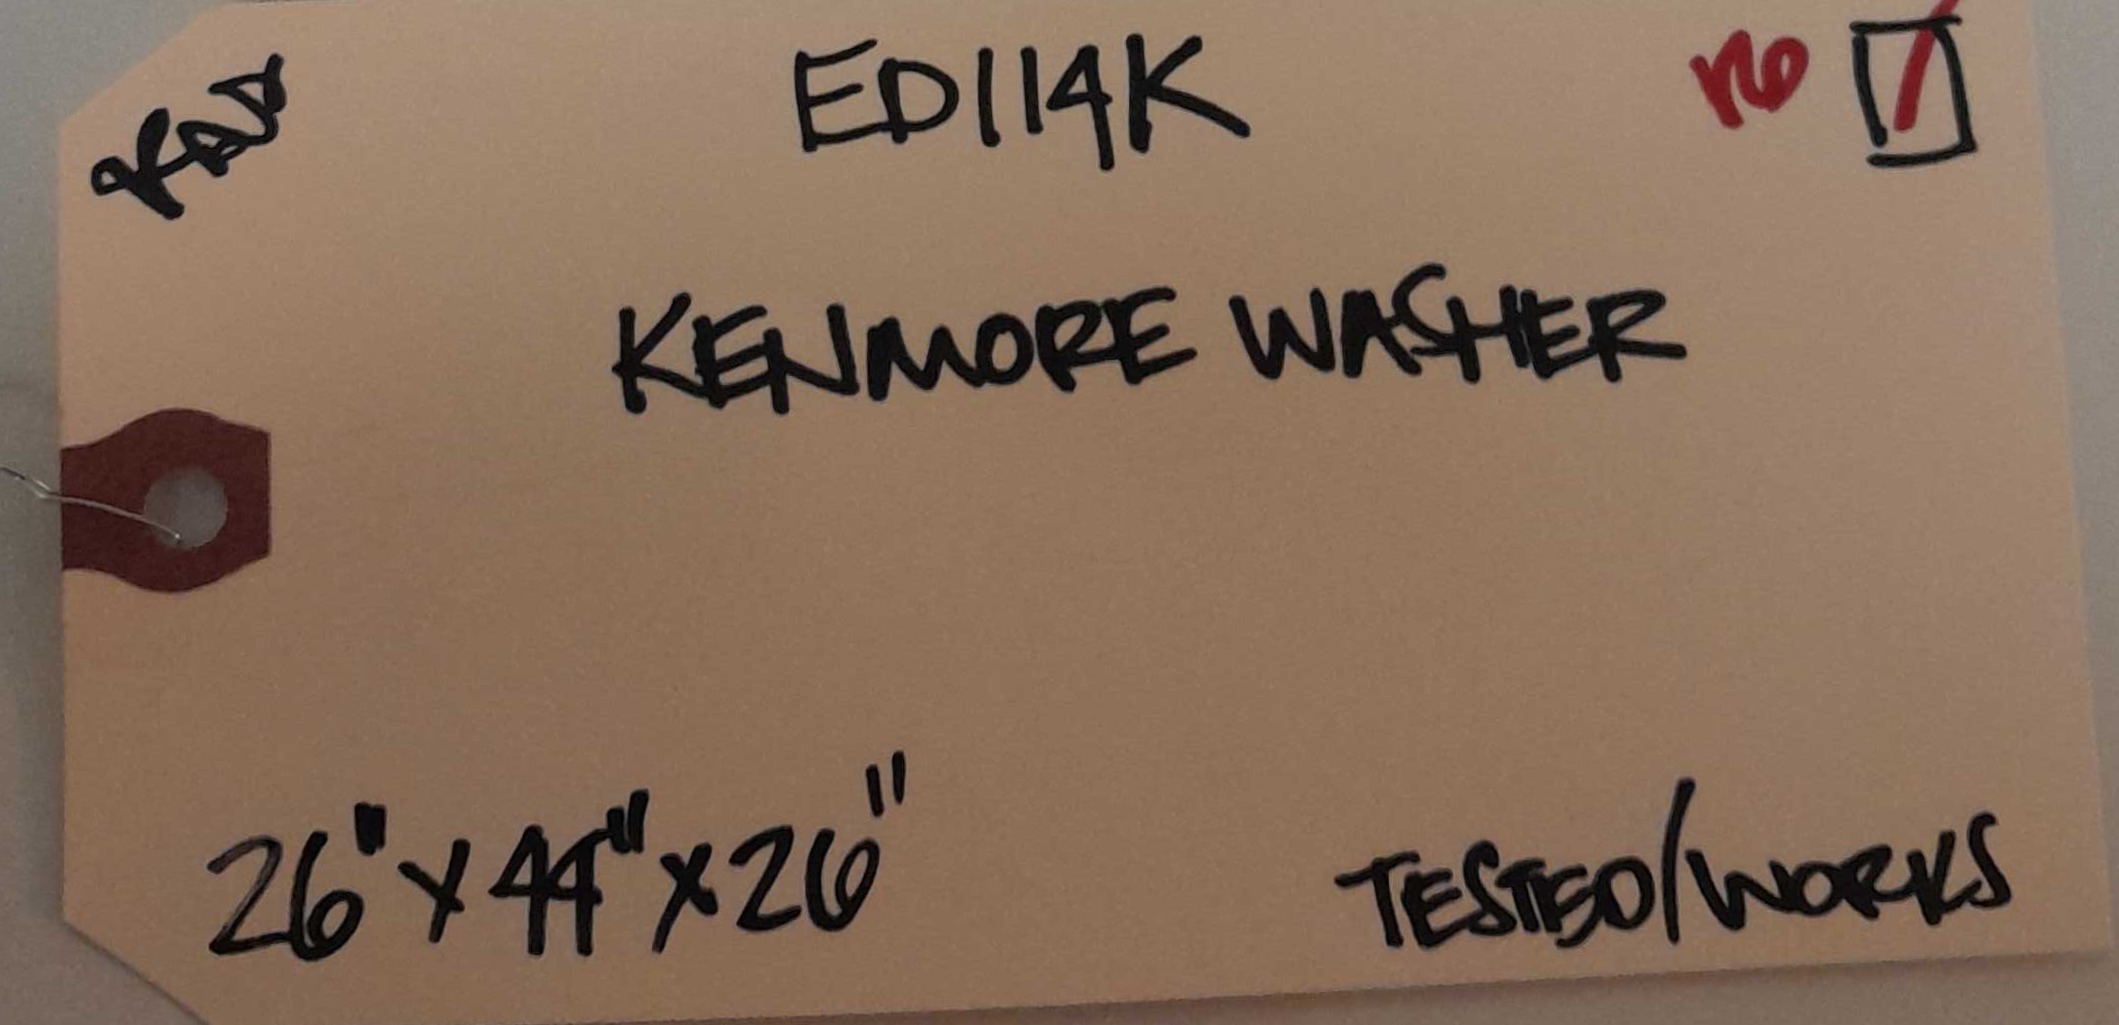 ED114K
KENMORE WASHER
26" x 44" x 26"
TESTED/WORKS